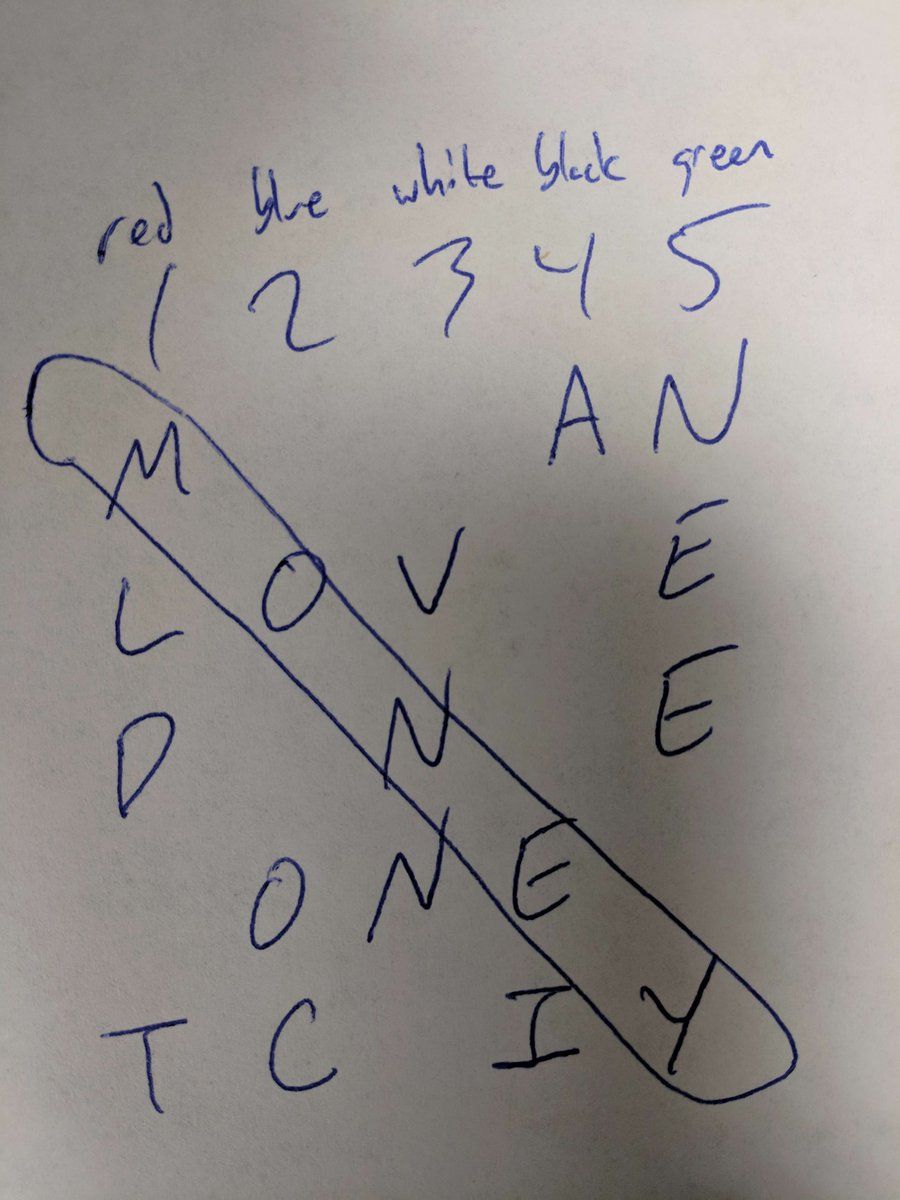 red blue white black green
1 2 3 4 5
M A N
L O V E
D N E
O N E
T C I Y